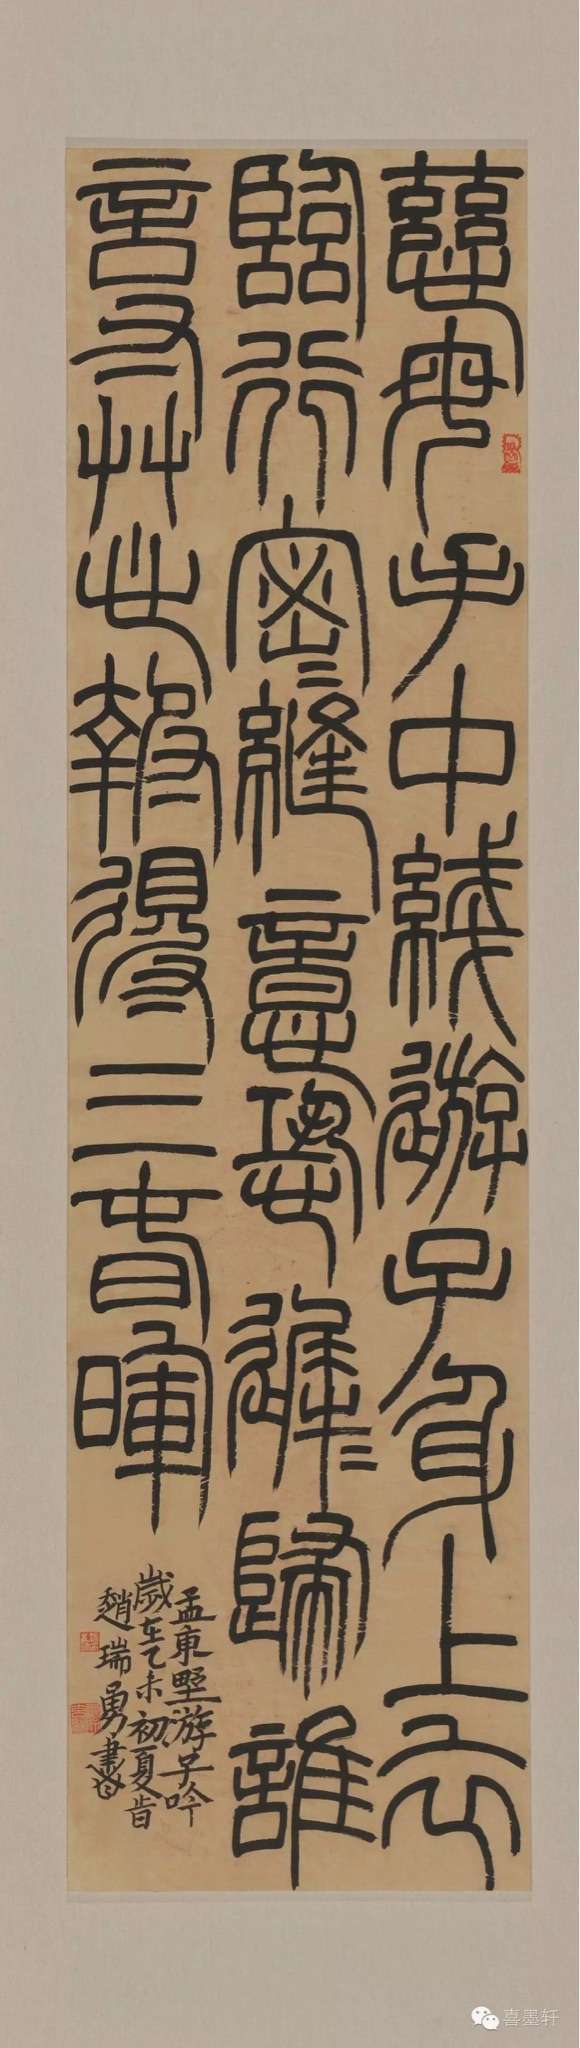 慈母手中綫遊子身上衣
臨行密〻縫意恐遲〻歸誰
言寸艸心報得三春暉
孟東野游子吟
歲在乙未初夏旹
趙瑞勇書
喜墨轩